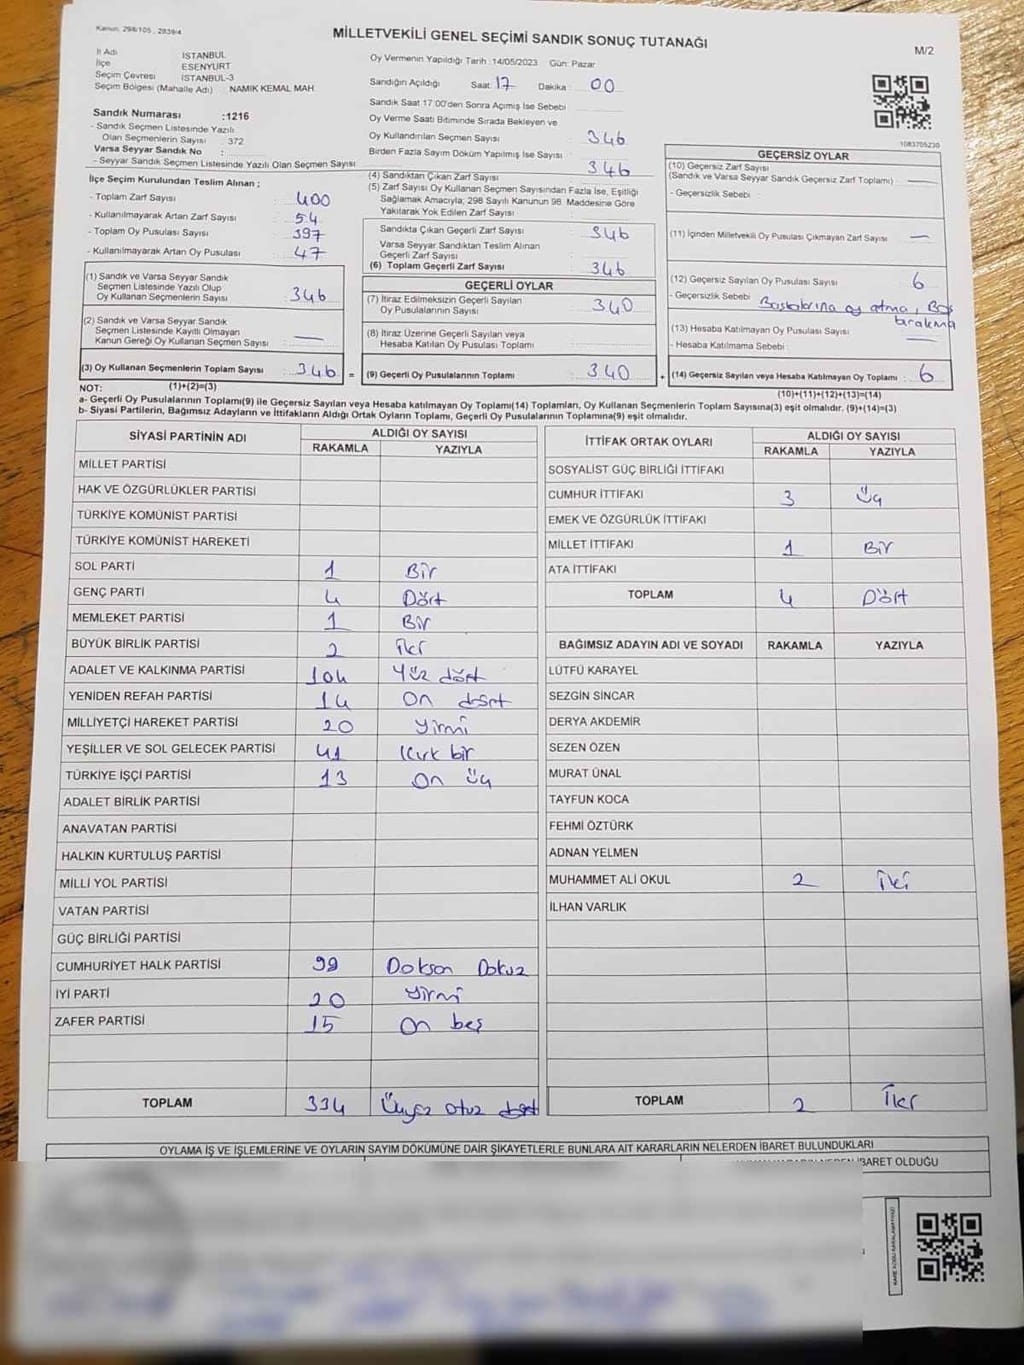 Kanun: 298/105 , 2839/4
MİLLETVEKİLİ GENEL SEÇİMİ SANDIK SONUÇ TUTANAĞI
M/2
İl Adı İSTANBUL
İlçe ESENYURT
Seçim Çevresi İSTANBUL-3
Seçim Bölgesi (Mahalle Adı) : NAMIK KEMAL MAH
Sandık Numarası :1216
- Sandık Seçmen Listesinde Yazılı
Olan Seçmenlerin Sayısı : 372
Varsa Seyyar Sandık No :
- Seyyar Sandık Seçmen Listesinde Yazılı Olan Seçmen Sayısı
Oy Vermenin Yapıldığı Tarih :14/05/2023 Gün: Pazar
Sandığın Açıldığı Saat 17 Dakika : 00
Sandık Saat 17:00'den Sonra Açımış İse Sebebi
Oy Verme Saati Bitiminde Sırada Bekleyen ve
Oy Kullandırılan Seçmen Sayısı 346
Birden Fazla Sayım Döküm Yapılmış İse Sayısı
1083705230
İlçe Seçim Kurulundan Teslim Alınan ;
- Toplam Zarf Sayısı : 400
- Kullanılmayarak Artan Zarf Sayısı : 54
- Toplam Oy Pusulası Sayısı : 397
- Kullanılmayarak Artan Oy Pusulası : 47
(1) Sandık ve Varsa Seyyar Sandık
Seçmen Listesinde Yazılı Olup
Oy Kullanan Seçmenlerin Sayısı : 346
(2) Sandık ve Varsa Seyyar Sandık
Seçmen Listesinde Kayıtlı Olmayan
Kanun Gereği Oy Kullanan Seçmen Sayısı : —
(3) Oy Kullanan Seçmenlerin Toplam Sayısı : 346 =
(4) Sandıktan Çıkan Zarf Sayısı 346
(5) Zarf Sayısı Oy Kullanan Seçmen Sayısından Fazla İse, Eşitliği
Sağlamak Amacıyla; 298 Sayılı Kanunun 98. Maddesine Göre
Yakılarak Yok Edilen Zarf Sayısı
Sandıkta Çıkan Geçerli Zarf Sayısı 346
Varsa Seyyar Sandıktan Teslim Alınan
Geçerli Zarf Sayısı
(6) Toplam Geçerli Zarf Sayısı : 346
GEÇERLİ OYLAR
(7) İtiraz Edilmeksizin Geçerli Sayılan
Oy Pusulalarının Sayısı : 340
(8) İtiraz Üzerine Geçerli Sayılan veya
Hesaba Katılan Oy Pusulası Toplamı
(9) Geçerli Oy Pusulalarının Toplamı : 340 +
GEÇERSİZ OYLAR
(10) Geçersiz Zarf Sayısı
(Sandık ve Varsa Seyyar Sandık Geçersiz Zarf Toplamı) : —
- Geçersizlik Sebebi :
(11) İçinden Milletvekili Oy Pusulası Çıkmayan Zarf Sayısı : —
(12) Geçersiz Sayılan Oy Pusulası Sayısı : 6
- Geçersizlik Sebebi : oy atma, Boş
bırakma
(13) Hesaba Katılmayan Oy Pusulası Sayısı : —
- Hesaba Katılmama Sebebi :
(14) Geçersiz Sayılan veya Hesaba Katılmayan Oy Toplamı : 6
NOT: (1)+(2)=(3)
(10)+(11)+(12)+(13)=(14)
a- Geçerli Oy Pusulalarının Toplamı(9) ile Geçersiz Sayılan veya Hesaba katılmayan Oy Toplamı(14) Toplamları, Oy Kullanan Seçmenlerin Toplam Sayısına(3) eşit olmalıdır. (9)+(14)=(3)
b- Siyasi Partilerin, Bağımsız Adayların ve İttifakların Aldığı Ortak Oyların Toplamı, Geçerli Oy Pusulalarının Toplamına(9) eşit olmalıdır.
SİYASİ PARTİNİN ADI ALDIĞI OY SAYISI
RAKAMLA YAZIYLA
MİLLET PARTİSİ
HAK VE ÖZGÜRLÜKLER PARTİSİ
TÜRKİYE KOMÜNİST PARTİSİ
TÜRKİYE KOMÜNİST HAREKETİ
SOL PARTİ 1 Bir
GENÇ PARTİ 4 Dört
MEMLEKET PARTİSİ 1 Bir
BÜYÜK BİRLİK PARTİSİ 2 İki
ADALET VE KALKINMA PARTİSİ 104 Yüz dört
YENİDEN REFAH PARTİSİ 14 On dört
MİLLİYETÇİ HAREKET PARTİSİ 20 Yirmi
YEŞİLLER VE SOL GELECEK PARTİSİ 41 Kırk bir
TÜRKİYE İŞÇİ PARTİSİ 13 On üç
ADALET BİRLİK PARTİSİ
ANAVATAN PARTİSİ
HALKIN KURTULUŞ PARTİSİ
MİLLİ YOL PARTİSİ
VATAN PARTİSİ
GÜÇ BİRLİĞİ PARTİSİ
CUMHURİYET HALK PARTİSİ 99 Doksan Dokuz
İYİ PARTİ 20 Yirmi
ZAFER PARTİSİ 15 On beş
TOPLAM 334 Üçyüz otuz dört
İTTİFAK ORTAK OYLARI ALDIĞI OY SAYISI
RAKAMLA YAZIYLA
SOSYALİST GÜÇ BİRLİĞİ İTTİFAKI
CUMHUR İTTİFAKI 3 Üç
EMEK VE ÖZGÜRLÜK İTTİFAKI
MİLLET İTTİFAKI 1 Bir
ATA İTTİFAKI
TOPLAM 4 Dört
BAĞIMSIZ ADAYIN ADI VE SOYADI RAKAMLA YAZIYLA
LÜTFÜ KARAYEL
SEZGİN SİNCAR
DERYA AKDEMİR
SEZEN ÖZEN
MURAT ÜNAL
TAYFUN KOCA
FEHMİ ÖZTÜRK
ADNAN YELMEN
MUHAMMET ALİ OKUL 2 İki
İLHAN VARLIK
TOPLAM 2 İki
OYLAMA İŞ VE İŞLEMLERİNE VE OYLARIN SAYIM DÖKÜMÜNE DAİR ŞİKAYETLERLE BUNLARA AİT KARARLARIN NELERDEN İBARET BULUNDUKLARI
İBARET OLDUĞU
KARE KODU KARALAMAYINIZ!